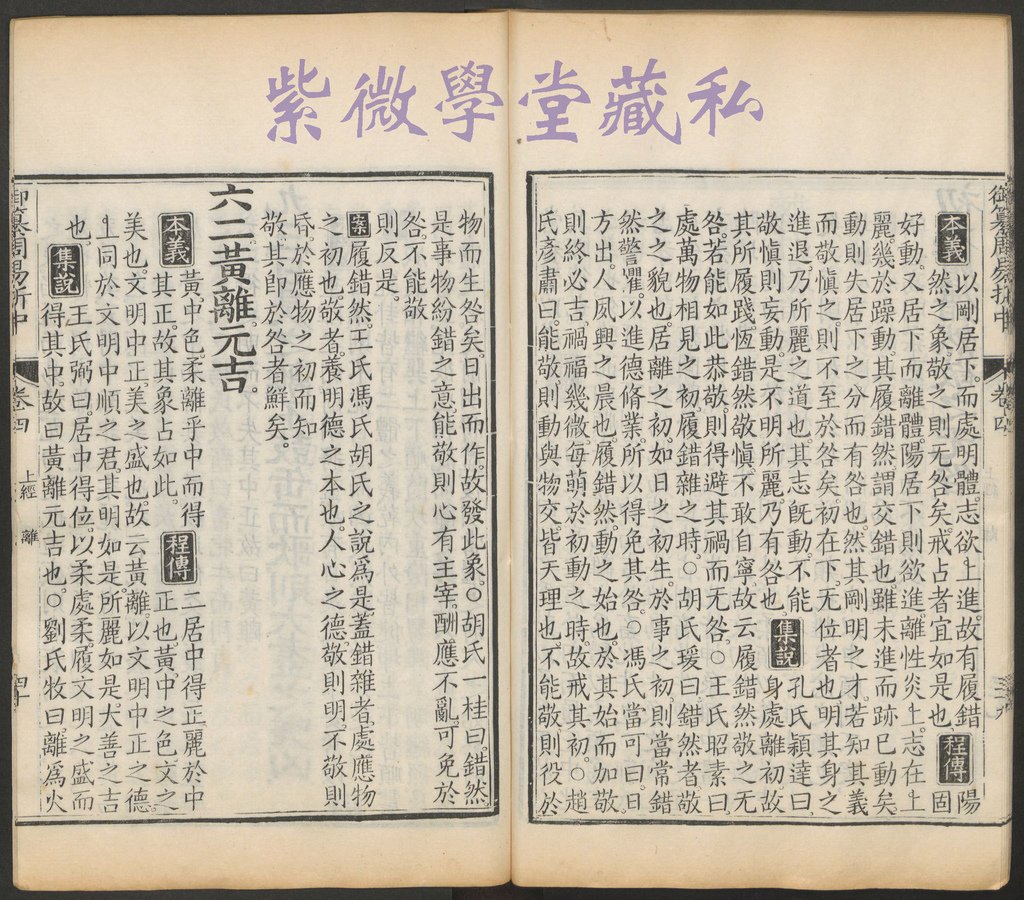 紫微學堂藏私
御纂周易折中 卷四 三九
本義 以剛居下。而處明體。志欲上進。故有履錯
然之象。敬之則无咎矣。戒占者宜如是也。 程傳 陽固
好動。又居下而離體陽居下則欲進離性炎上。志在上
麗。幾於躁動。其履錯然謂交錯也雖未進而跡已動矣
動則失居下之分而有咎也。然其剛明之才。若知其義
而敬慎之。則不至於咎矣。初在下。无位者也。明其身之
進退。乃所麗之道也。其志旣動。不能
敬慎則妄動。是不明所麗。乃有咎也。 集說 孔氏穎達曰。身處離初。故
其所履踐。恆錯然敬慎。不敢自寧。故云履錯然敬之无
咎。若能如此恭敬。則得避其禍而无咎。○王氏昭素曰
處萬物相見之初。履錯雜之時。○胡氏瑗曰。錯然者敬
之之貌也。居離之初。如日之初生。於事之初。則當常錯
然警懼。以進德脩業。所以得免其咎。○馮氏當可曰。日
方出。人夙興之晨也。履錯然。動之始也。於其始而加敬
則終必吉。禍福幾微。每萌於初動之時。故戒其初。○趙
氏彥肅曰。能敬則動與物交。皆天理也。不能敬。則役於
物而生咎矣。日出而作。故發此象。○胡氏一桂曰。錯然
是事物紛錯之意。能敬則心有主宰。酬應不亂。可免於
咎。不能敬
則反是。
案 履錯然。王氏馮氏胡氏之說爲是蓋錯雜者。處應物
之初也。敬者。養明德之本也。人心之德。敬則明。不敬則
昏。於應物之初而知
敬。其卽於咎者鮮矣。
六二黃離元吉。
本義 黃。中色。柔離乎中而得
其正。故其象占如此。 程傳 二居中得正。麗於中正也。黃。中之色。文之
美也。文明中正。美之盛也。故云黃離。以文明中正之德
上同於文明中順之君。其明如是。所麗如是。大善之吉
也。 集說 王氏弼曰。居中得位。以柔處柔。履文明之盛而
得其中。故曰黃離元吉也。○劉氏牧曰。離爲火
御纂周易折中 卷四 上經 離 四十